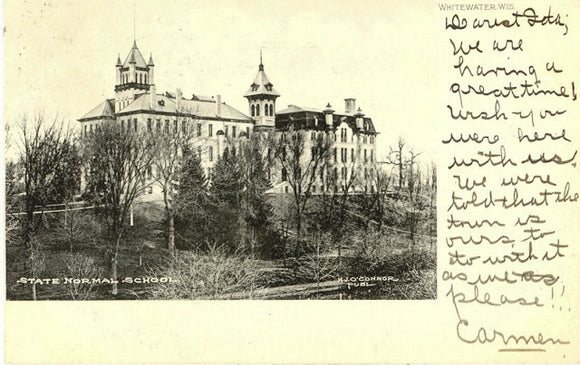 WHITEWATER, WIS.
Dearest Ida;
We are
having a
great time!
Wish you
were here
with us.
We were
told that the
town is
ours, to
do with it
as we as
please!!
Carmen
STATE NORMAL SCHOOL
H.J. O'CONNOR
PUBL.